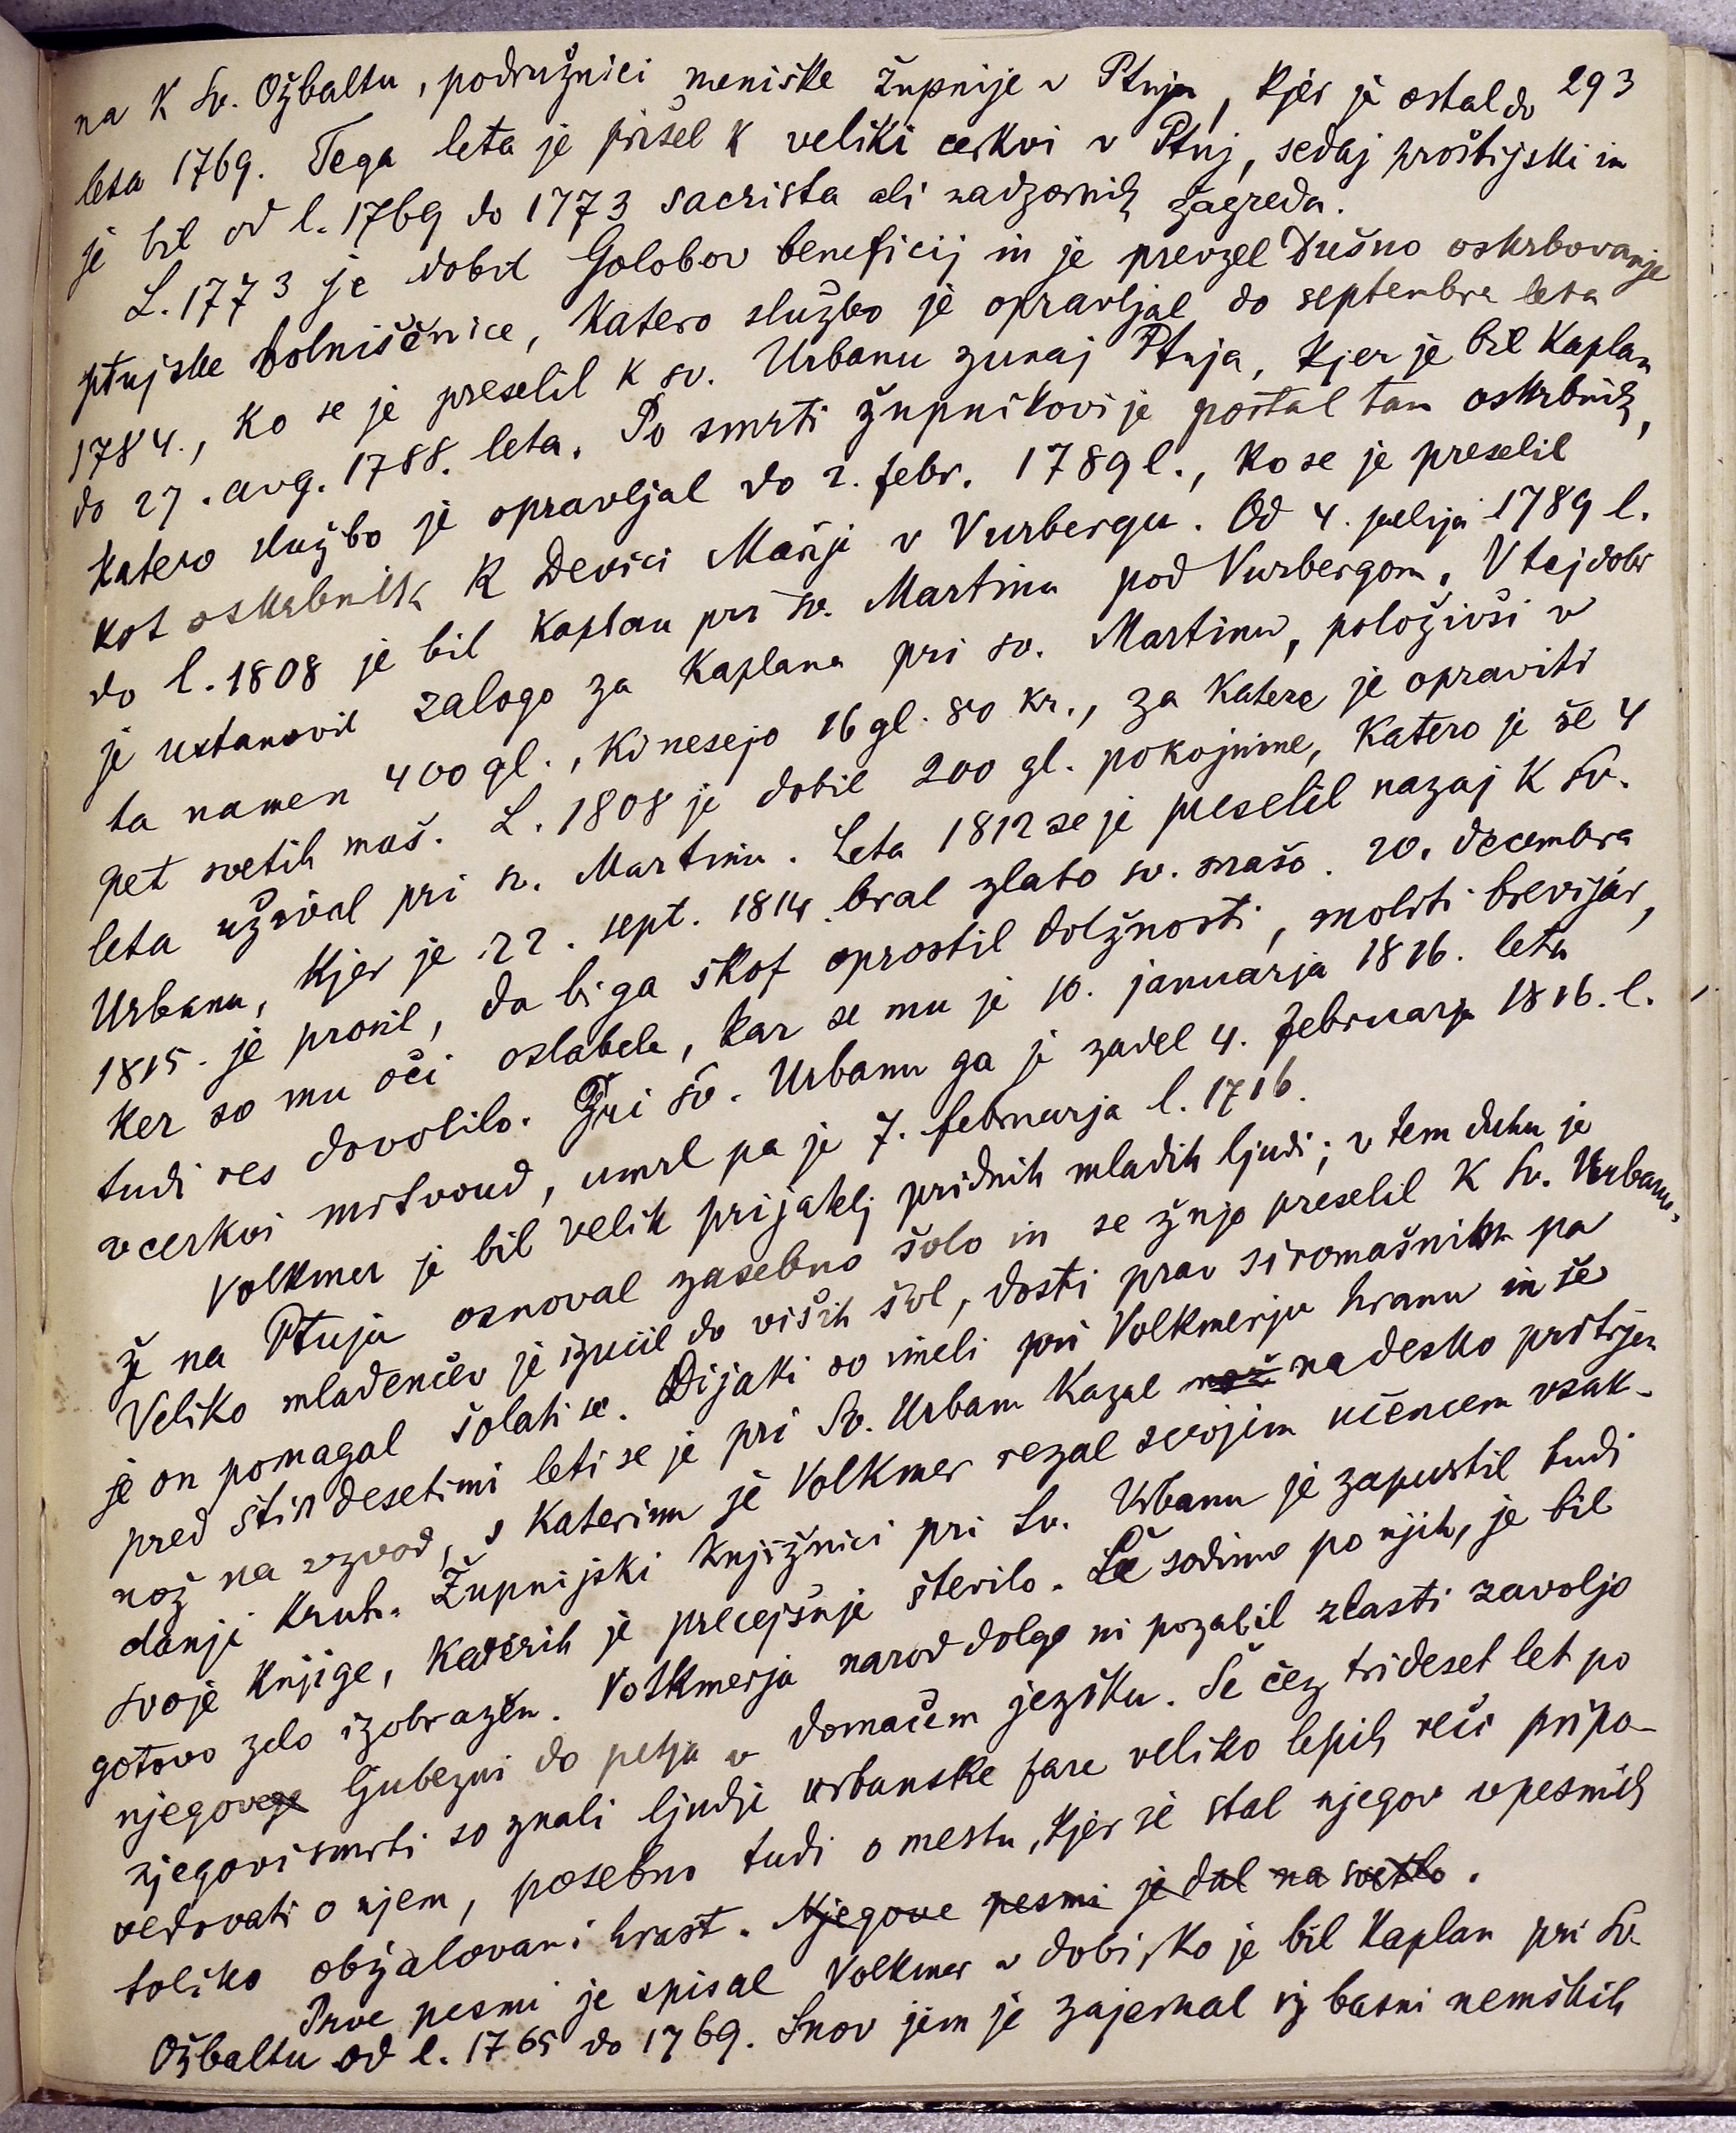 293
na k sv. Ožbaltu, podružnici meniške župnije v Ptuju, kjer je ostal do
leta 1769. Tega leta je prišel k veliki cerkvi v Ptuj, sedaj proštijski in
je bil od l. 1769 do 1773 sacrista ali nadzornik žagreda.
L. 1773 je dobil Golobov beneficij in je prevzel Dušno oskrbovanje
ptujske bolniščnice, katero službo je opravljal do septembra leta
1784., ko se je preselil k sv. Urbanu zunaj Ptuja, kjer je bil kaplan
do 27. avg. 1788. leta. Po smrti župnikovi je postal tam oskrbnik,
katero službo je opravljal do 2. febr. 1789 l., ko se je preselil
kot oskrbnik k Devici Mariji v Vurbergu. Od 4. julija 1789 l.
do l. 1808 je bil kaplan pri sv. Martinu pod Vurbergom. V tej dobi
je ustanovil zalogo za kaplana pri sv. Martinu, položivši v
ta namen 400 gl., ki nesejo 16 gl. 80 kr., za katere je opraviti
pet svetih maš. L. 1808 je dobil 200 gl. pokojnine, katero je še 4
leta užival pri sv. Martinu. Leta 1812 se je preselil nazaj k Sv.
Urbanu, kjer je 22. sept. 1814. bral zlato sv. mašo. 20. decembra
1815. je prosil, da bi ga škof oprostil dolžnosti, moliti brevijar,
ker so mu oči oslabele, kar se mu je 10. januarja 1816. leta
tudi res dovolilo. Pri sv. Urbanu ga je zadel 4. februarja 1816. l.
v cerkvi mrtvoud, umrl pa je 7. februarja l. 1716.
Volkmer je bil velik prijatelj pridnih mladih ljudi; v tem duhu je
že na Ptuju osnoval zasebno šolo in se žnjo preselil k Sv. Urbanu.
Veliko mladenčev je izučil do viših šol, dosti prav siromašnih pa
je on pomagal šolati se. Dijaki so imeli pri Volkmerju hranu in še
pred štiridesetimi leti se je pri Sv. Urbanu kazal nož na desko pritrjen
nož na vzvod, s katerim je Volkmer rezal svojim učencem vsak-
danji kruh. Župnijski knjižnici pri Sv. Urbanu je zapustil tudi
svoje knjige, katerih je precejšnje število. Če sodimo po njih, je bil
gotovo zelo izobražen. Volkmerja narod dolgo ni pozabil zlasti zavoljo
njegovega ljubezni do petja v domačem jeziku. Še čez trideset let po
njegovi smrti so znali ljudje urbanske fare veliko lepih reči pripo-
vedovati o njem, posebno tudi o mestu, kjer je stal njegov v pesmih
toliko obžalovani hrast. Njegove pesmi je dal na svetlo.
Prve pesmi je spisal Volkmer v dobi, ko je bil kaplan pri Sv.
Ožbaltu od l. 1765 do 1769. Snov jim je zajemal iz basni nemških